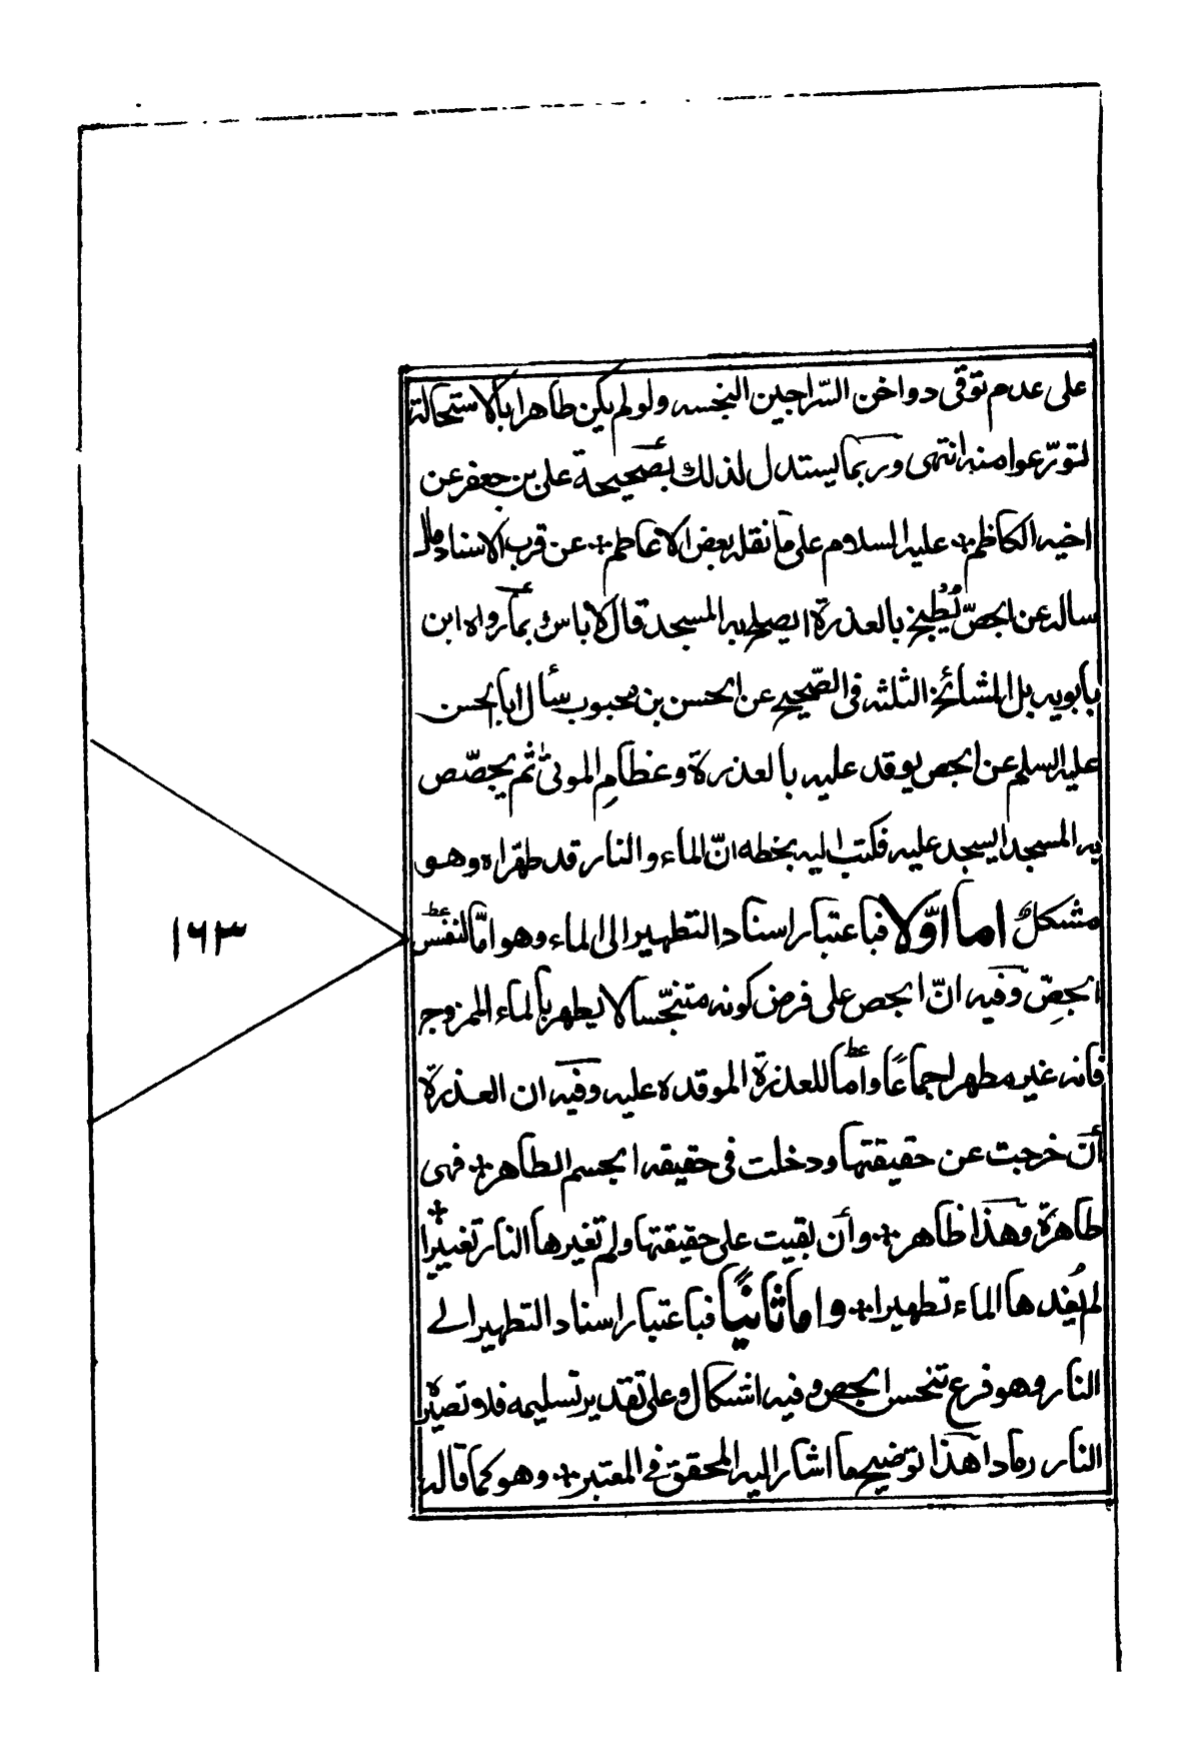 على عدم توقى دواخن السّراجين النجسه ولو لم يكن طاهرا بالاستحالة
لتورّعوا منه انتهى وربما يستدل لذلك بصحيحة على بن جعفر عن
اخيه الكاظم عليه السلام على ما نقله بعض الاعاظم عن قرب الاسناد
ساله عن الجصّ يُطبخ بالعذرة ايصلح به المسجد قال لاباس بما رواه ابن
بابويه بل المشائخ الثلثه فى الصّحيح عن الحسن بن محبوب سأل ابا الحسن
عليه السلم عن الجص يوقد عليه بالعذرة وعظامِ الموتى ثم يجصّص
به المسجد ايسجد عليه فكتب اليه بخطه انّ الماء والنار قد طهّراه وهو
مشكلٌ اما اوّلا فباعتبار اسناد التطهير الى الماء وهو امّا لنفس
الجصِّ وفيه انّ الجص على فرض كونه متنجّسا لا يطهر بالماء الممزوج
فانه غير مطهر اجماعًا وأما للعذرة الموقده عليه وفيه ان العذرة
أن خرجت عن حقيقتها ودخلت فى حقيقه الجسم الطاهر فهى
طاهرة وهذا ظاهر وأن بقيت على حقيقتها ولم تغيرها النار تغييرا
لم يُفدها الماء تطهيرا واما ثانيًا فباعتبار اسناد التطهير الے
النار وهو فرع تنجس الجص وفيه اشكال وعلى تقدير تسليمه فلا تصيّره
النار رمادا هذا توضيح ما اشار اليه المحقق فے المعتبر وهو كما قاله
١٦٣